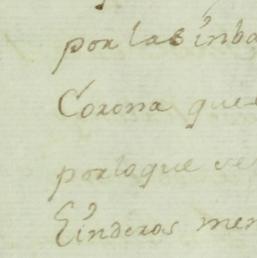 por las inba
Corona que
por lo que ve
Linderos men